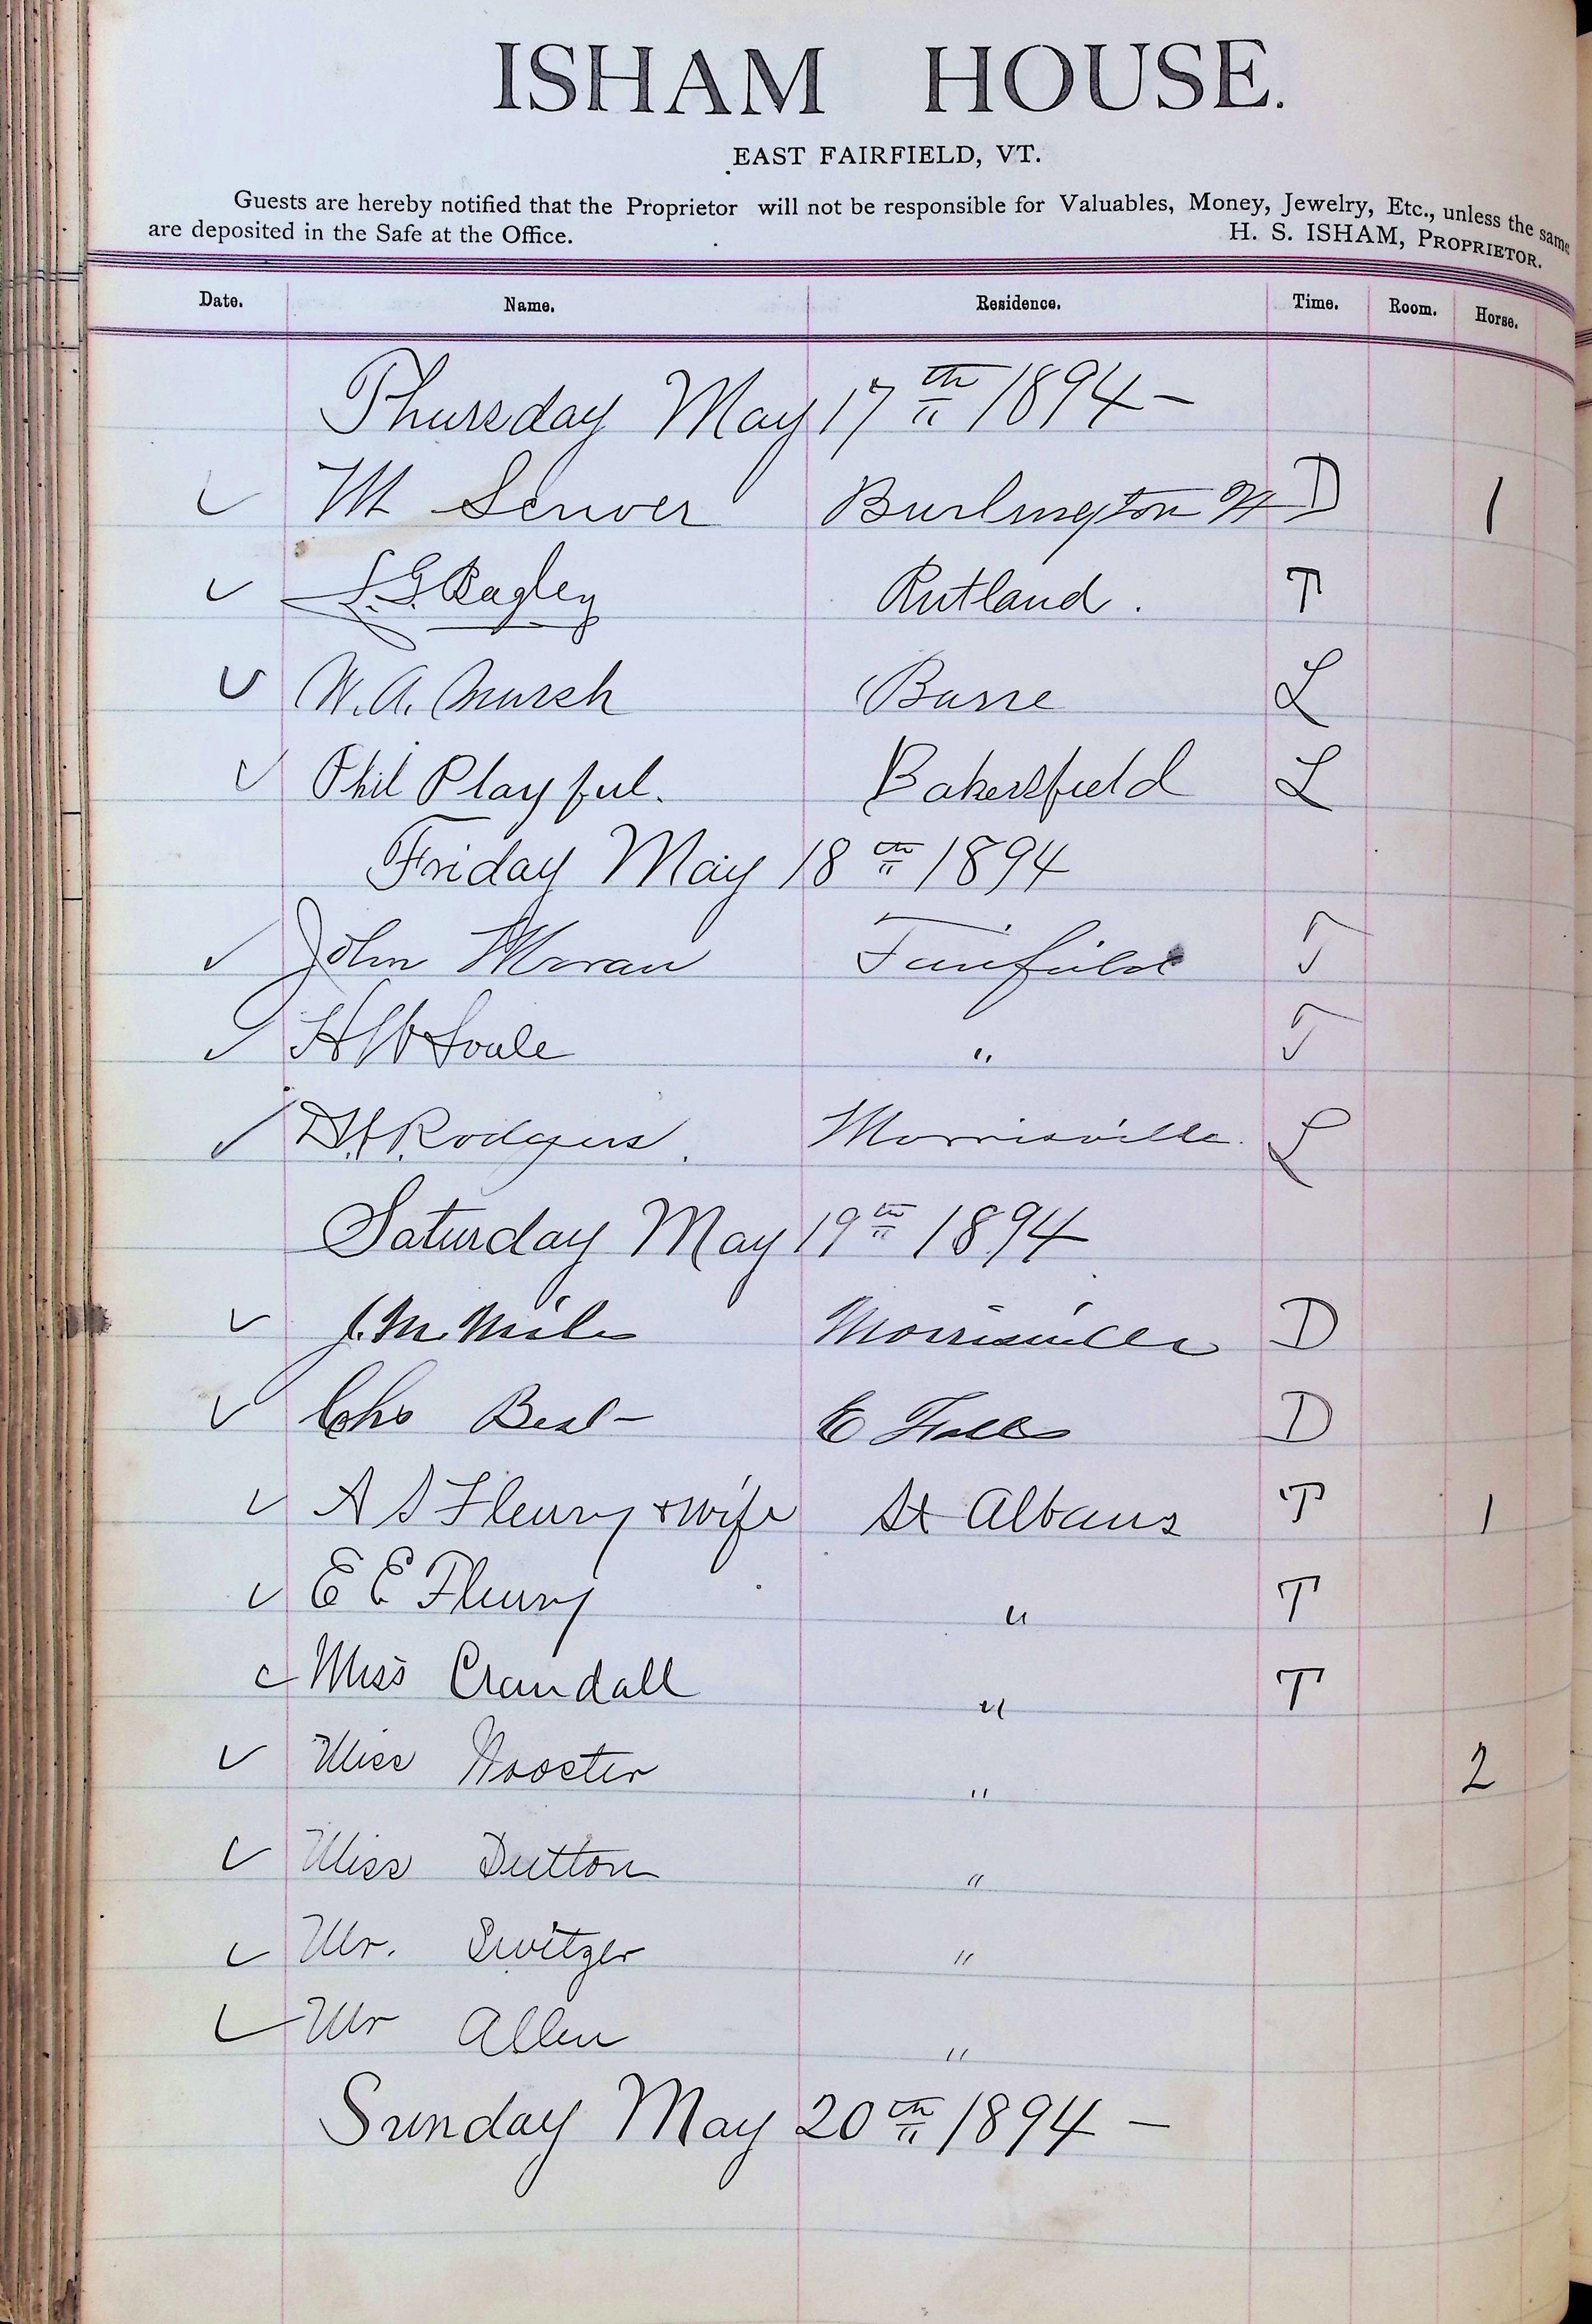 ISHAM HOUSE.
EAST FAIRFIELD, VT.
Guests are hereby notified that the Proprietor will not be responsible for Valuables, Money, Jewelry, Etc., unless the same
are deposited in the Safe at the Office. H. S. ISHAM, PROPRIETOR.
Date. Name. Residence. Time. Room. Horse.
Thursday May 17th 1894 -
M Burlington Vt D 1
L.G. Bagley Rutland. T
W. A. Barre L
Phil Playful. Bakersfield L
Friday May 18th 1894
John Moran Fairfield T
H W Soule " T
Rodgers. Morrisville. L
Saturday May 19th 1894
J. M. Miles Morrisville D
Chs Best - E Falls D
A S Fleury & wife St Albans T 1
E E Fleury " T
Miss Crandall " T
Miss Wooster " 2
Miss Dutton "
Mr. Switzer "
Mr Allen "
Sunday May 20th 1894 -